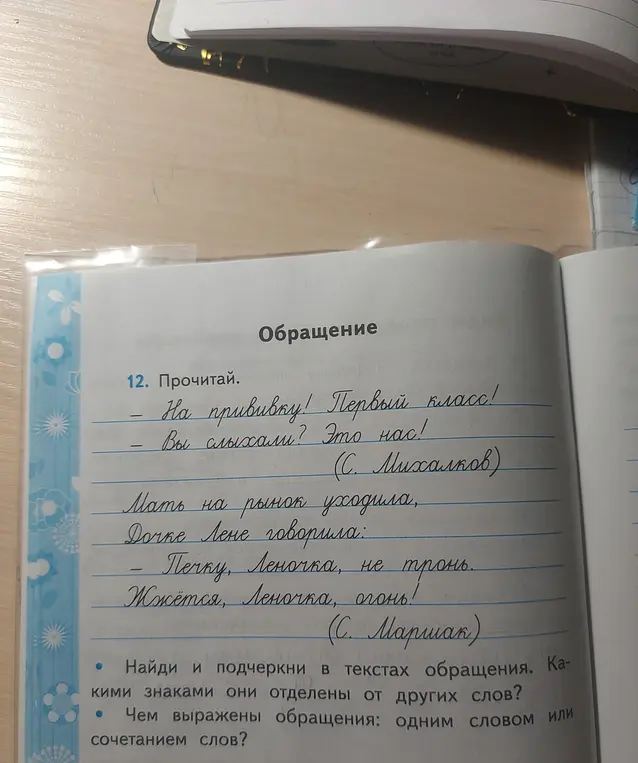 Обращение
12. Прочитай.
– На прививку! Первый класс!
– Вы слыхали? Это нас!
(С. Михалков)
Мать на рынок уходила,
Дочке Лене говорила:
– Печку, Леночка, не тронь.
Жжётся, Леночка, огонь!
(С. Маршак)
• Найди и подчеркни в текстах обращения. Ка-
кими знаками они отделены от других слов?
• Чем выражены обращения: одним словом или
сочетанием слов?